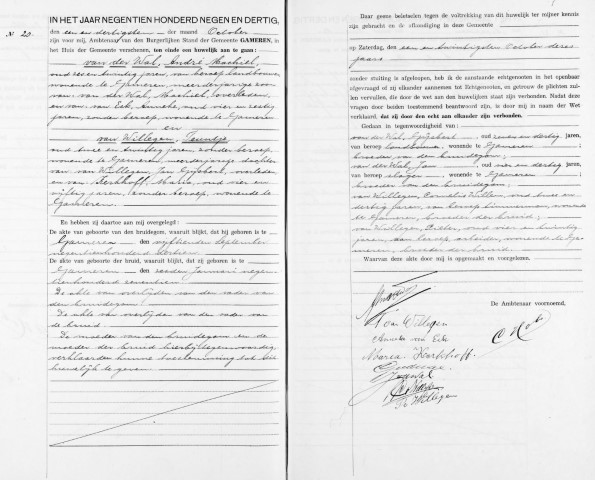 № 20
IN HET JAAR NEGENTIEN HONDERD NEGEN EN DERTIG,
den een en dertigsten der maand October
zijn voor mij, Ambtenaar van den Burgerlijken Stand der Gemeente GAMEREN, in
het Huis der Gemeente verschenen, ten einde een huwelijk aan te gaan:
van der Wal, André Machiel,
oud zes en twintig jaren, van beroep landbouwer,
wonende te Gameren, meerderjarige zoon
van: van der Wal, Machiel, overleden,
en van van Eck, Anneke, oud vier en zestig
jaren, zonder beroep, wonende te Gameren.
en
van Willegen, Teuntje
oud twee en twintig jaren, zonder beroep,
wonende te Gameren, meerderjarige dochter
van van Willegen, Jan Gijsbert, overleden
en van Kerkhoff, Maria, oud vier en
vijftig jaren, zonder beroep, wonende te
Gameren.
En hebben zij daartoe aan mij overgelegd:
De akte van geboorte van den bruidegom, waaruit blijkt, dat hij geboren is te
Gameren den vijftienden September
negentienhonderd dertien
De akte van geboorte der bruid, waaruit blijkt, dat zij geboren is te
Gameren den zesden Januari negen-
tienhonderd zeventien
De akte van overlijden van den vader van
den bruidegom.
De akte van overlijden van den vader van
de bruid.
De moeder van den bruidegom en de
moeder der bruid hierbij tegenwoordig,
verklaarden hunne toestemming tot dit
huwelijk te geven.
Daar geene beletselen tegen de voltrekking van dit huwelijk ter mijner kennis
zijn gebracht en de afkondiging in deze Gemeente
op Zaterdag, den een en twintigsten October dezes
jaars
zonder stuiting is afgeloopen, heb ik de aanstaande echtgenooten in het openbaar
afgevraagd of zij elkander aannemen tot Echtgenooten, en getrouw de plichten zul-
len vervullen, die door de wet aan den huwelijken staat zijn verbonden. Nadat deze
vragen door beiden toestemmend beantwoord zijn, is door mij in naam der Wet
verklaard, dat zij door den echt aan elkander zijn verbonden.
Gedaan in tegenwoordigheid van:
van der Wal, Gijsbert, oud zeven en dertig jaren,
van beroep landbouwer, wonende te Gameren;
broeder van den bruidegom;
van der Wal, Jan, oud vier en dertig jaren,
van beroep wonende te Gameren;
broeder van den bruidegom;
van Willegen, Cornelis Willem, oud twee en
dertig jaren, van beroep timmerman, wonende
te Gameren, broeder der bruid;
van Willegen, Pieter, oud vier en twintig
jaren, van beroep arbeider, wonende te Ga-
meren, broeder der bruid.
Waarvan deze akte door mij is opgemaakt en voorgelezen.
De Ambtenaar voornoemd,
T van Willegen
Anneke van Eck
Maria Kerkhoff